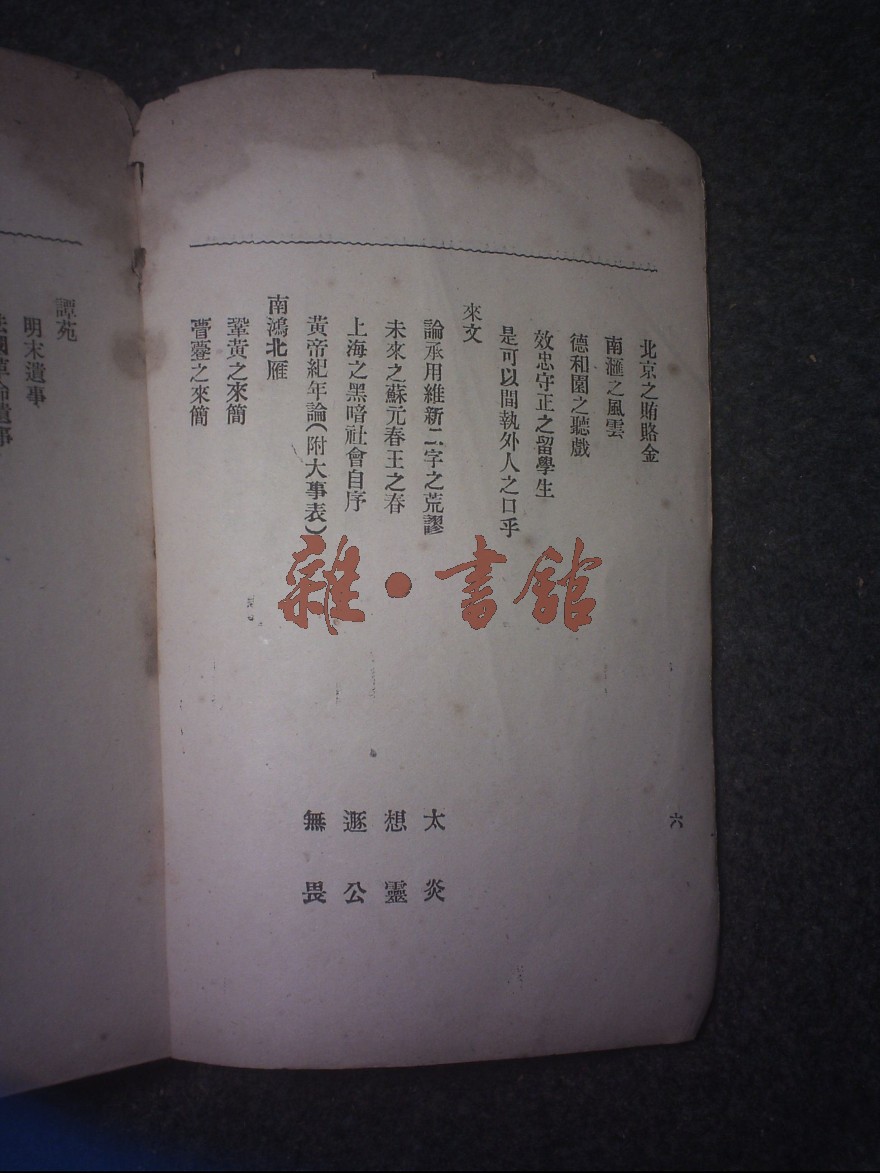 六
北京之賄賂金
南滙之風雲
德和園之聽戲
效忠守正之留學生
是可以間執外人之口乎
來文
論承用維新二字之荒謬 太炎
未來之蘇元春王之春 想靈
上海之黑暗社會自序 遯公
黃帝紀年論(附大事表) 無畏
南鴻北雁
鞏黃之來簡
之來簡
譚苑
明末遺事
法國革命遺事
雜·書館